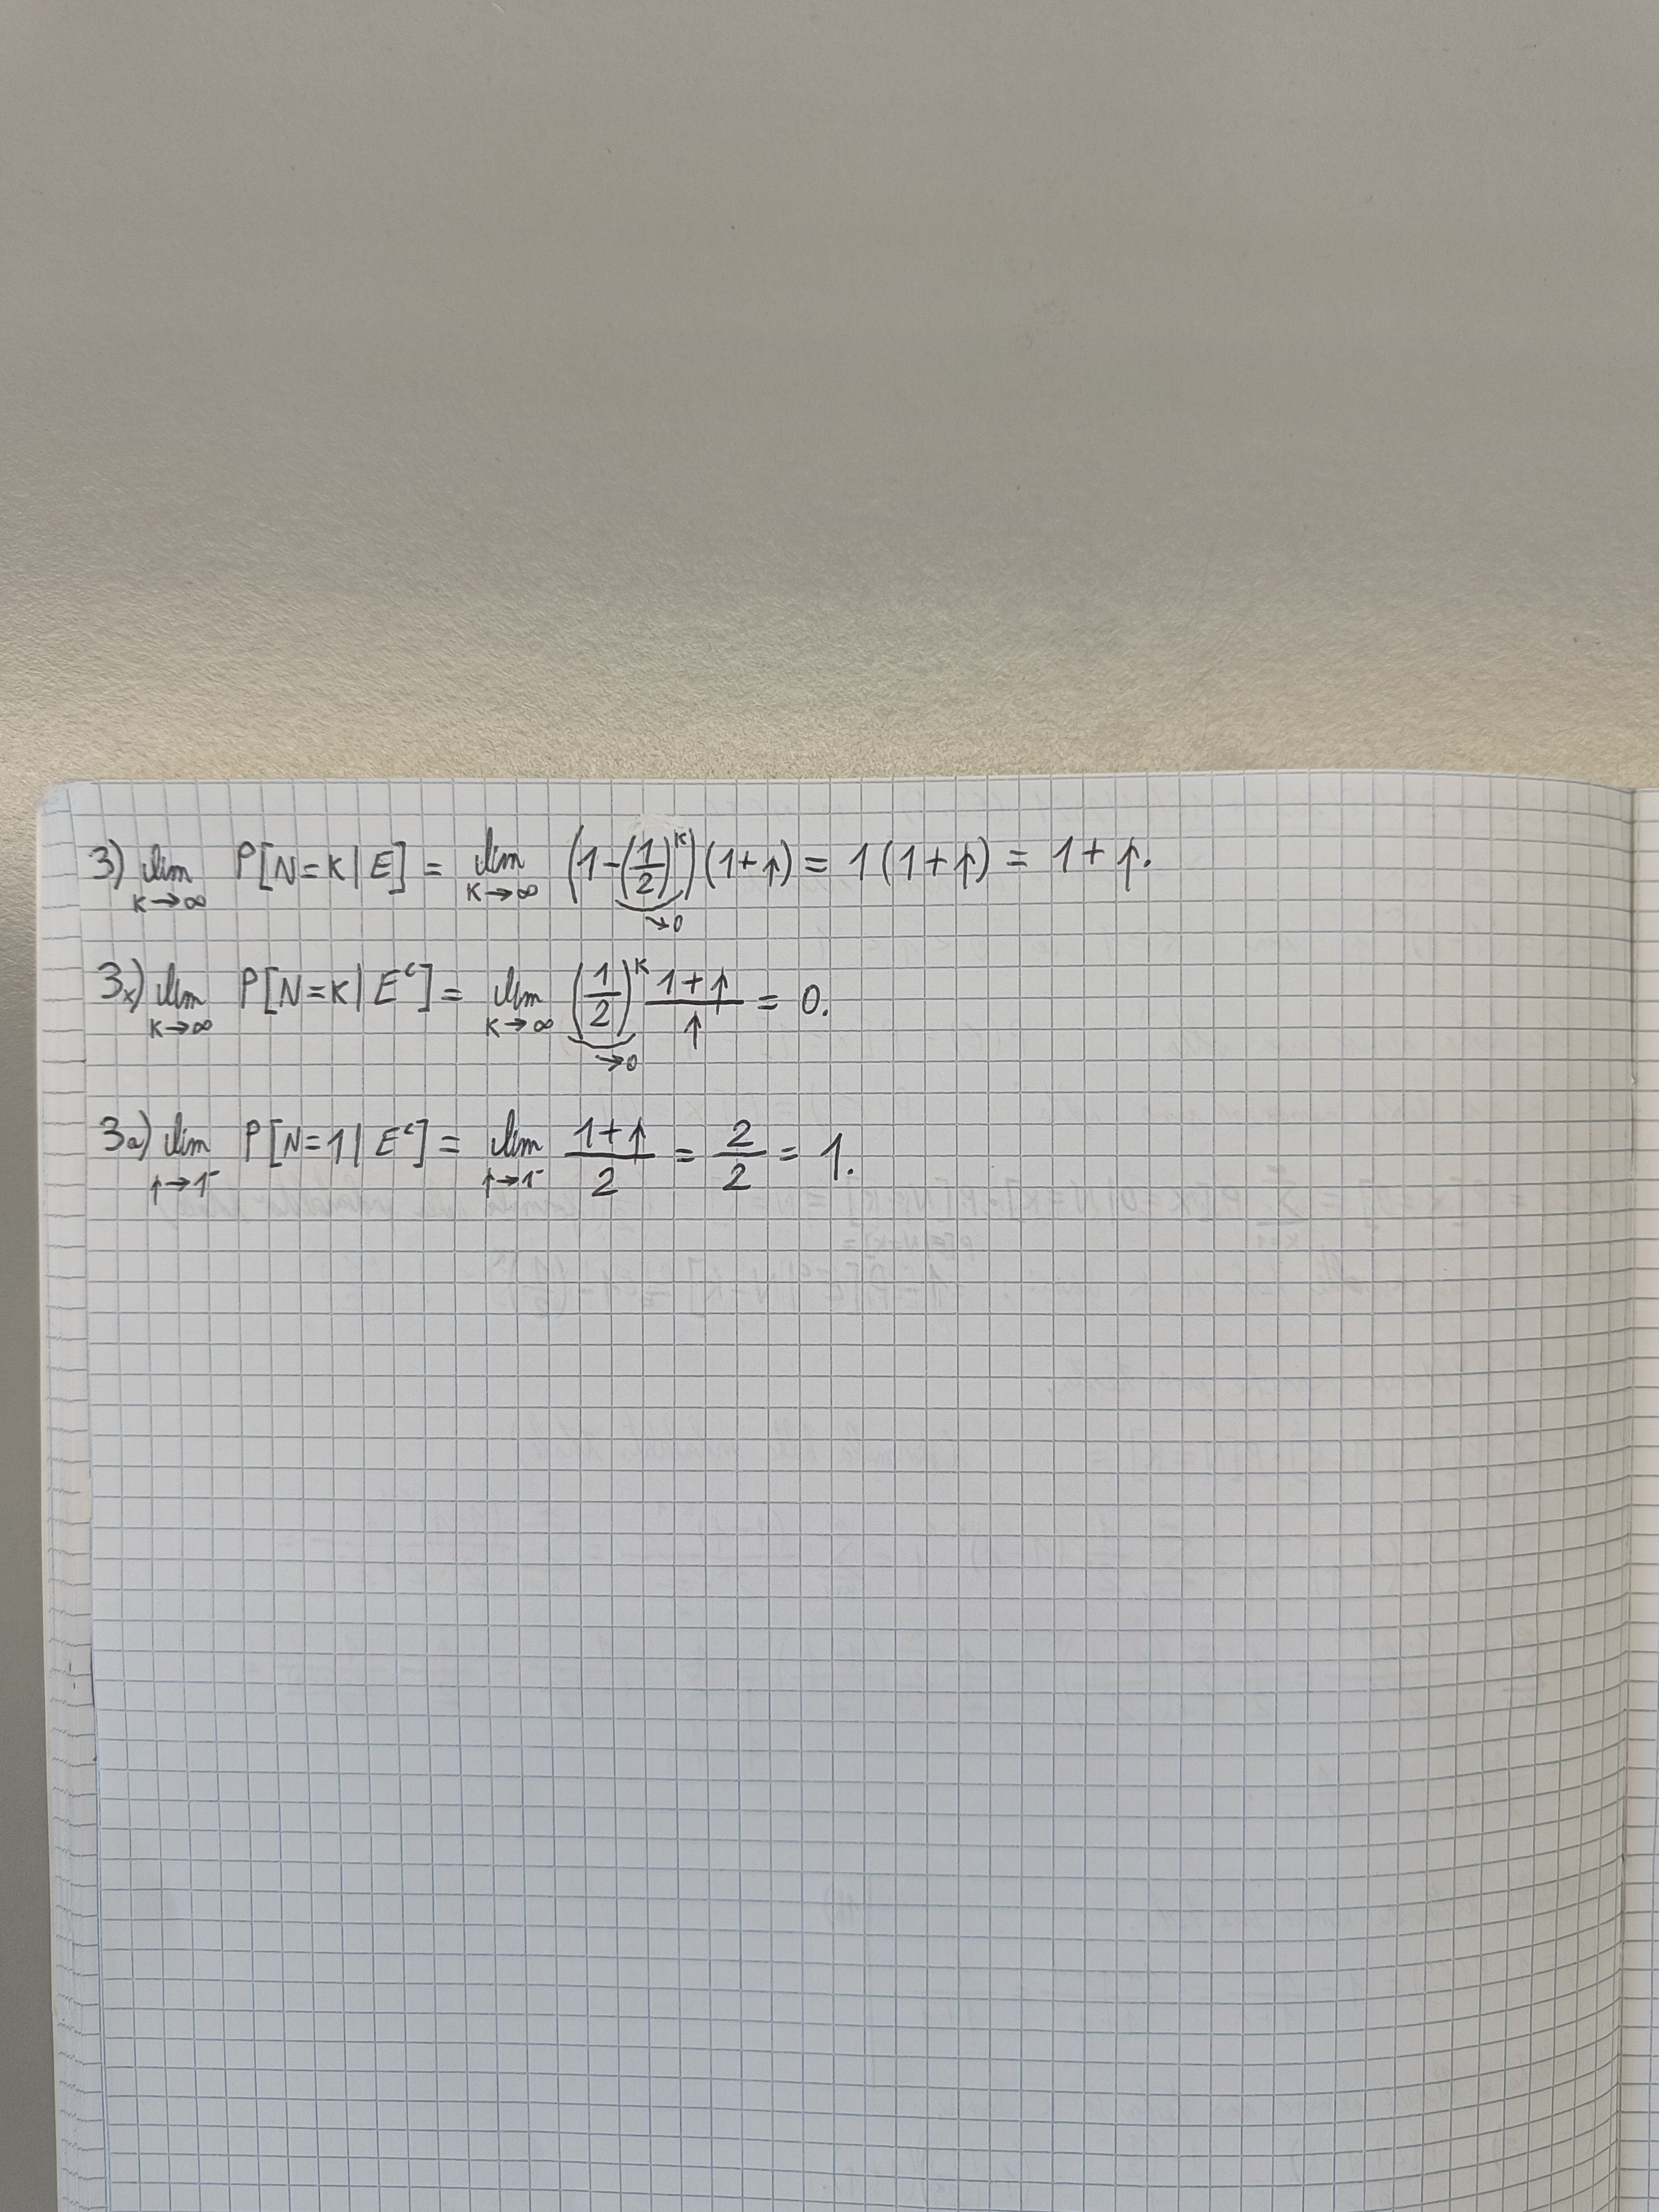 3) lim_{K→∞} P[N=K|E] = lim_{K→∞} (1-(1/2)^K)(1+p) = 1(1+p) = 1+p.
→0
3x) lim_{K→∞} P[N=K|E^c] = lim_{K→∞} (1/2)^K (1+p)/p = 0.
→0
3a) lim_{p→1⁻} P[N=1|E^c] = lim_{p→1⁻} (1+p)/2 = 2/2 = 1.